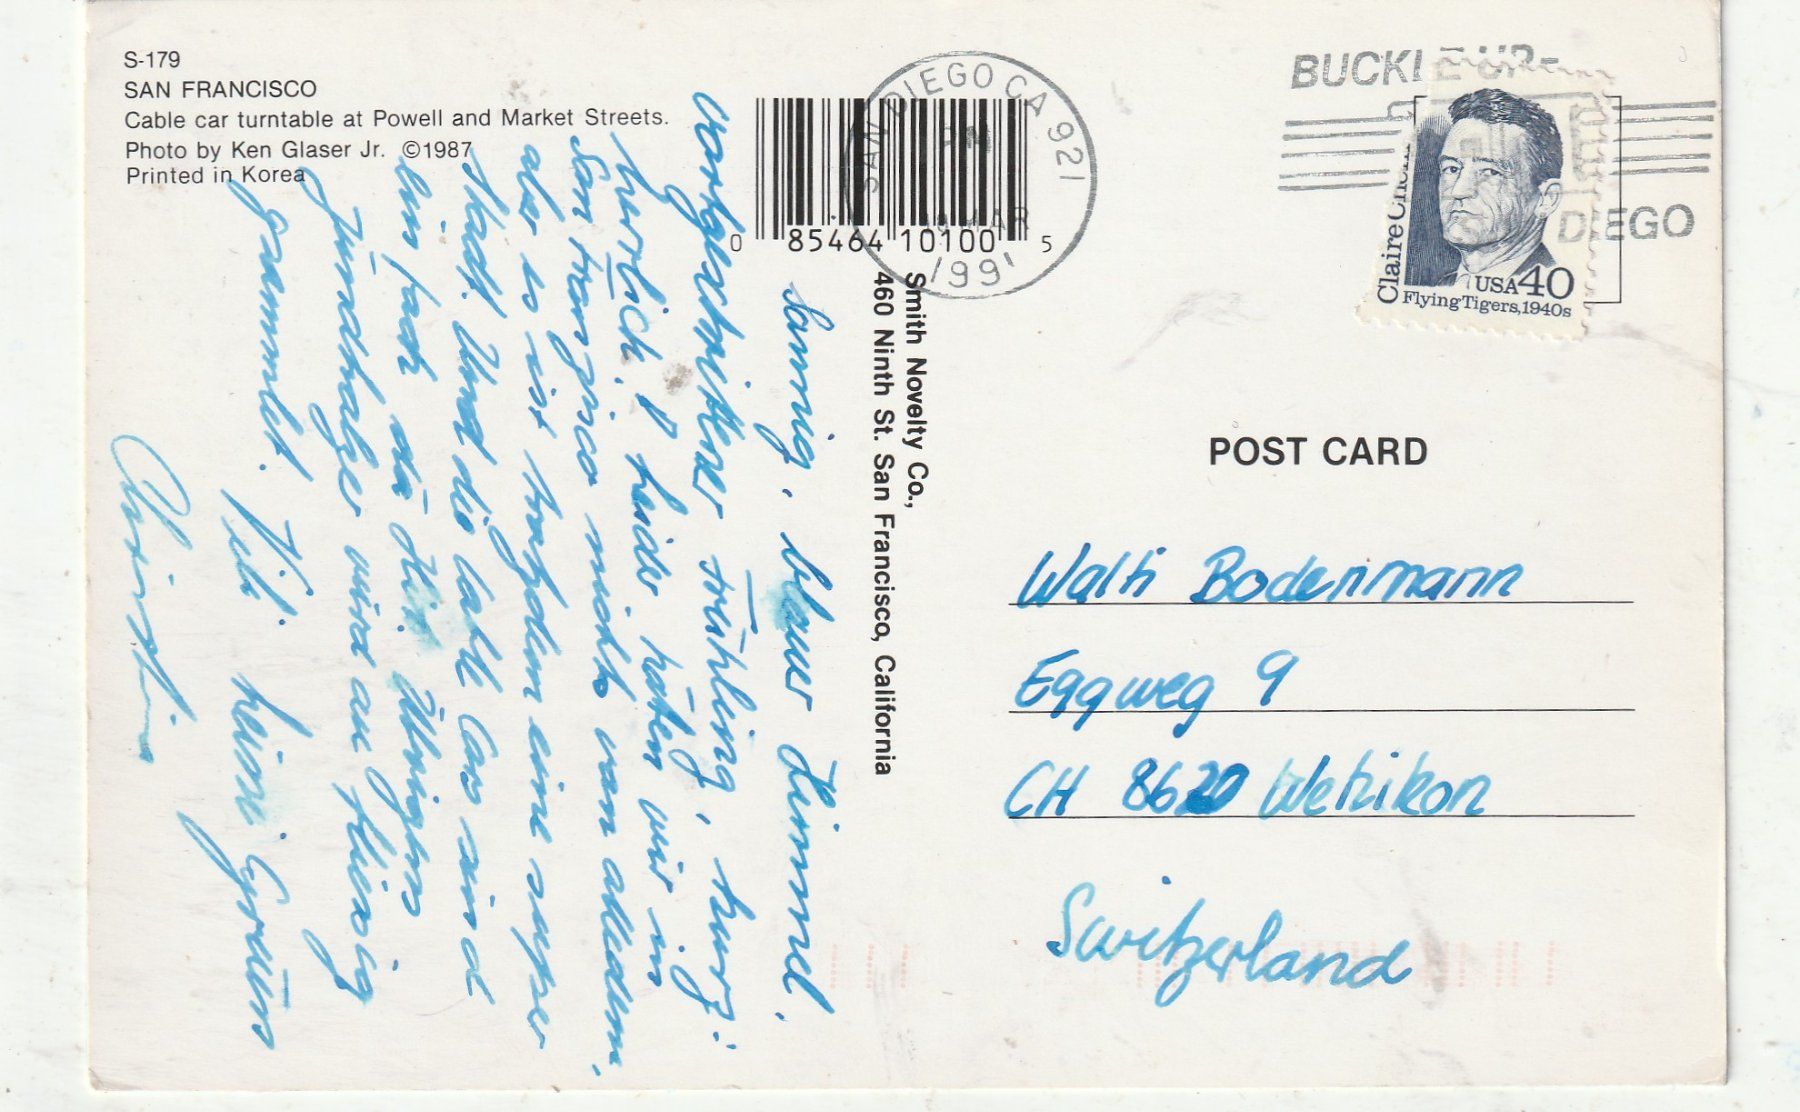 S-179
SAN FRANCISCO
Cable car turntable at Powell and Market Streets.
Photo by Ken Glaser Jr. ©1987
Printed in Korea
Sonnig, blauer Himmel,
vorgeschrittener Frühling, kurz:
herrlich! Leider hatten wir in
San Franzisco nicht von alledem,
aber es ist trotzdem eine super
Stadt. Und die Cable Cars sind
Übrigens
Fundhalzer wird au fleissig
gsammlet. Vili heissi Grüess
Christin
0 85464 10100 5
Smith Novelty Co.,
460 Ninth St. San Francisco, California
SAN DIEGO CA 921
PM
MAR
1991
BUCKLE UP
DIEGO
Claire Chen
USA 40
Flying Tigers, 1940s
POST CARD
Walti Bodenmann
Eggweg 9
CH 8620 Wetzikon
Switzerland